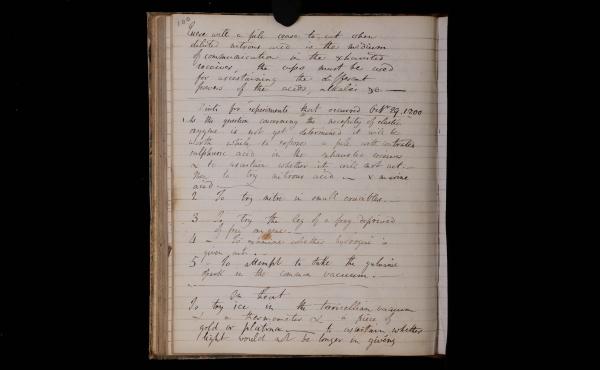 100
will a pile cease to act when
diluted nitrous acid is the medium
of communication in the exhausted
receiver, the cups must be used
for ascertaining the different
powers of the acids, alkalis &c —
Hints for experiments that occurred Octr 29. 1800
1 As the question concerning the necessity of
oxygene is not yet determined it will be
worth while to expose a pile with
sulphuric acid in the exhausted receiver
& to ascertain whether it will not act —
to try nitrous acid — & marine
acid —
2 To try nitre in small crucibles. —
3 — To try the leg of a frog deprived
of free
4 — To examine whether hydrogene is
given out. —
5 — To attempt to take the galvanic
spark in the common vacuum. —
On heat
To try ice in the torricellian vacuum
& a thermometer & a piece of
gold or platina — to ascertain whether
light would not be longer in giving